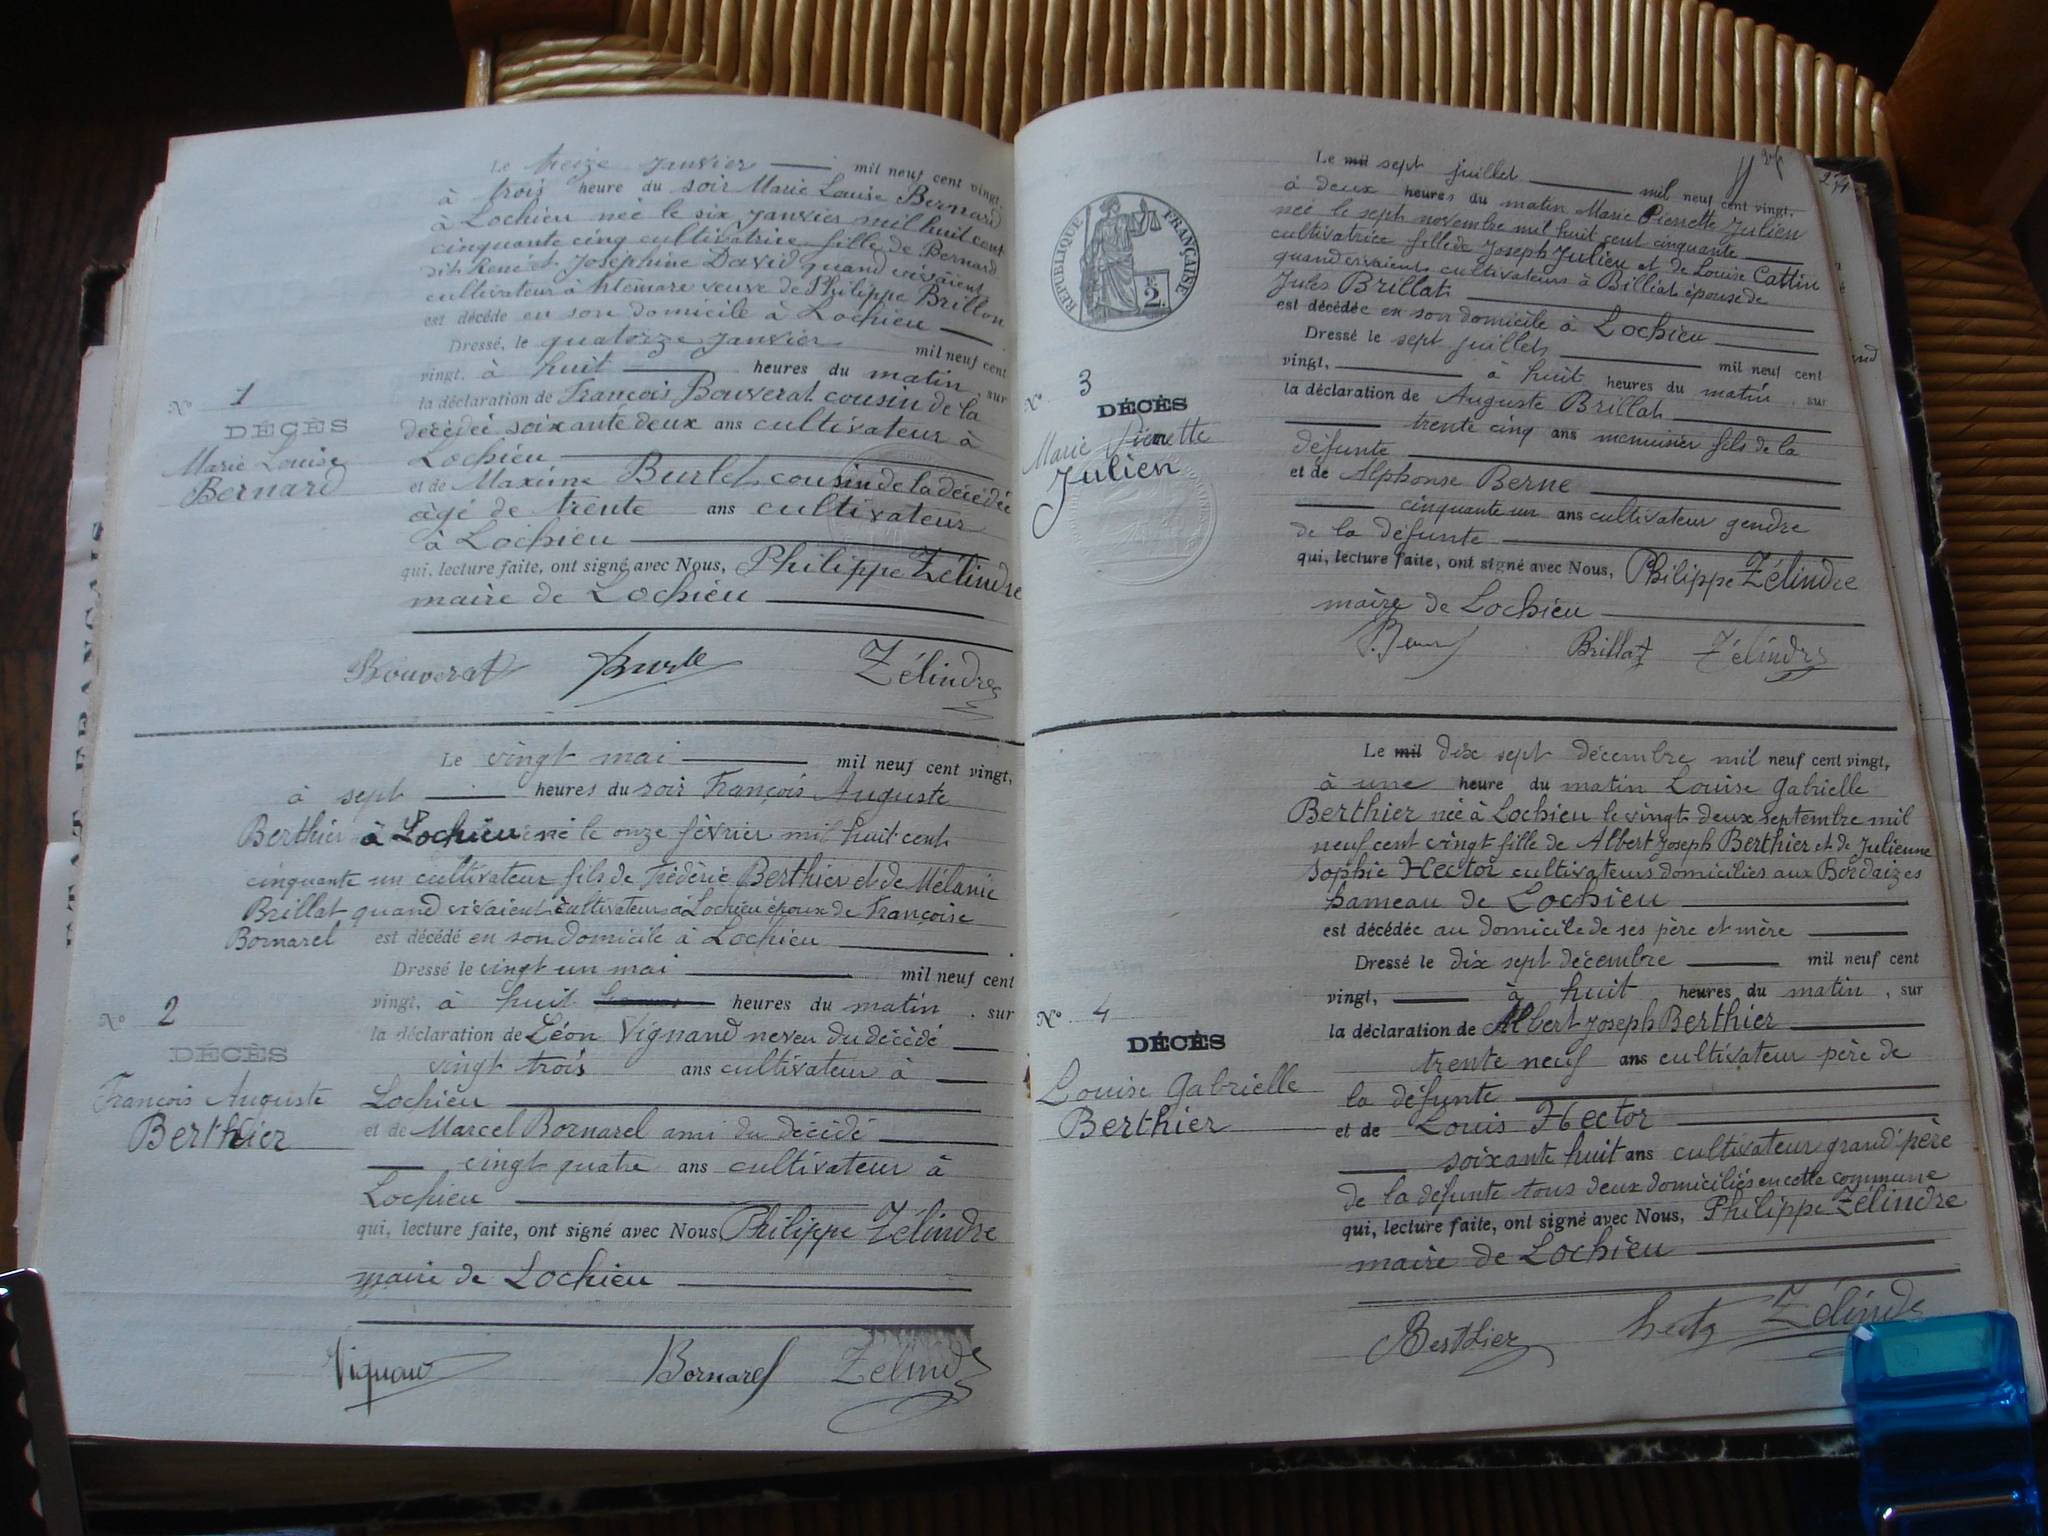 Le treize janvier mil neuf cent vingt,
à trois heure du soir Marie Louise Bernard
à Lochieu née le six janvier mil huit cent
cinquante cinq cultivatrice fille de Bernard
dit René et Joséphine David quand vivaient
cultivateur à veuve de Philippe Brillon
est décédé en son domicile à Lochieu
Dressé, le quatorze janvier mil neuf cent
vingt, à huit heures du matin, sur
la déclaration de François Bouverat cousin de la
décédée soixante deux ans cultivateur à
Lochieu
et de Maxime Burlet, cousin de la décédée
âgé de trente ans cultivateur
à Lochieu
qui, lecture faite, ont signé avec Nous, Philippe Zélindre
maire de Lochieu
N° 1
DÉCÈS
Marie Louise
Bernard
Bouverat Zélindre
Le vingt mai mil neuf cent vingt,
à sept heures du soir François Auguste
Berthier à Lochieu né le onze février mil huit cent
cinquante un cultivateur fils de Frédéric Berthier et de Mélanie
Brillat quand vivaient cultivateurs à Lochieu époux de Françoise
Bornarel est décédé en son domicile à Lochieu
Dressé le vingt un mai mil neuf cent
vingt, à huit heures du matin, sur
la déclaration de Léon Vignand neveu du décédé
vingt trois ans cultivateur à
Lochieu
et de Marcel Bornarel ami du décédé
vingt quatre ans cultivateur à
Lochieu
qui, lecture faite, ont signé avec Nous Philippe Zélindre
maire de Lochieu
N° 2
DÉCÈS
François Auguste
Berthier
Bornarel Zélindre
RÉPUBLIQUE FRANÇAISE
2
Le mil sept juillet mil neuf cent vingt,
à deux heures du matin Marie Pierrette Julien
née le sept novembre mil huit cent cinquante
cultivatrice fille de Joseph Julien et de Louise Cattin
quand vivaient cultivateurs à Billiat épouse de
Jules Brillat
est décédée en son domicile à Lochieu
Dressé le sept juillet mil neuf cent
vingt, à huit heures du matin, sur
la déclaration de Auguste Brillat
trente cinq ans menuisier fils de la
défunte
et de Alphonse Berne
cinquante un ans cultivateur gendre
de la défunte
qui, lecture faite, ont signé avec Nous, Philippe Zélindre
maire de Lochieu
N° 3
DÉCÈS
Marie Pierrette
Julien
Brillat Zélindre
Le mil dix sept décembre mil neuf cent vingt,
à une heure du matin Louise Gabrielle
Berthier née à Lochieu le vingt deux septembre mil
neuf cent vingt fille de Albert Joseph Berthier et de Julienne
Sophie Hector cultivateurs domiciliés aux Bordaizes
hameau de Lochieu
est décédée au domicile de ses père et mère
Dressé le dix sept décembre mil neuf cent
vingt, à huit heures du matin, sur
la déclaration de Albert Joseph Berthier
trente neuf ans cultivateur père de
la défunte
et de Louis Hector
soixante huit ans cultivateur grand'père
de la défunte tous deux domiciliés en cette commune
qui, lecture faite, ont signé avec Nous, Philippe Zélindre
maire de Lochieu
N° 4
DÉCÈS
Louise Gabrielle
Berthier
Berthier Zélindre